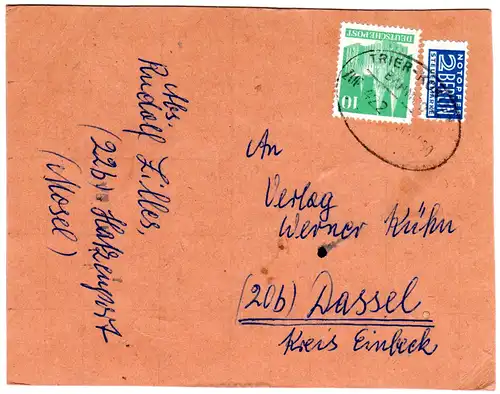 Abs.
Rudolf Lilles,
(22b) Hatzenport
(Mosel)
DEUTSCHE POST
10
TRIER-
ZUG
NOTOPFER
2 BERLIN
STEUERMARKE
An
Verlag
Werner Kühn
(20b) Dassel
Kreis Einbeck